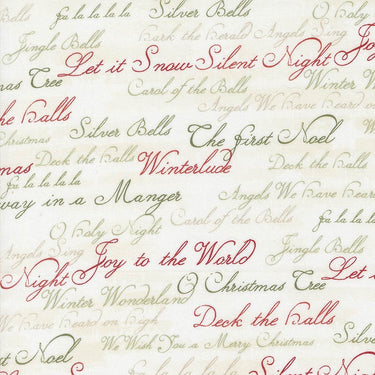 fa la la la la Silver Bells O Holy
Jingle Bells Hark the Herald Angels Sing Joy
Let it Snow Silent Night
mas Tree Carol of the Bells Winter W
the Halls Angels We Have Heard on
Christmas Silver Bells The First Noel
mas Deck the Halls Winterlude Deck the Halls
fa la la la la
way in a Manger Angels We Have Hear
O Holy Night Carol of the Bells fa la la la
Angels Sing Jingle Bells
Night Joy to the World Let i
Winter Wonderland O Christmas Tree
We Have Heard on High Deck the Halls
We Wish You a Merry Christmas Silver
st Noel Silent Night